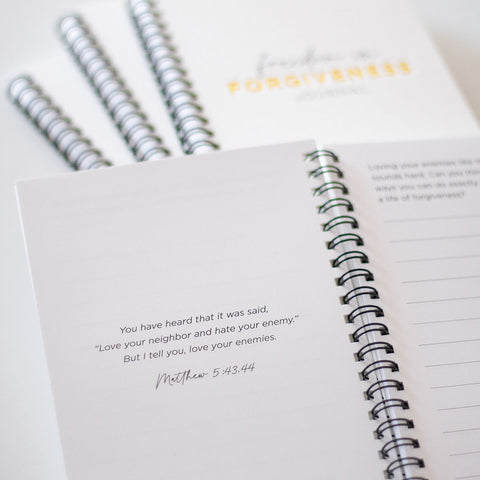 freedom in
FORGIVENESS
JOURNAL
You have heard that it was said,
"Love your neighbor and hate your enemy."
But I tell you, love your enemies.
Matthew 5:43,44
Loving your enemies
sounds hard. Can you
ways you can do exactly
a life of forgiveness?